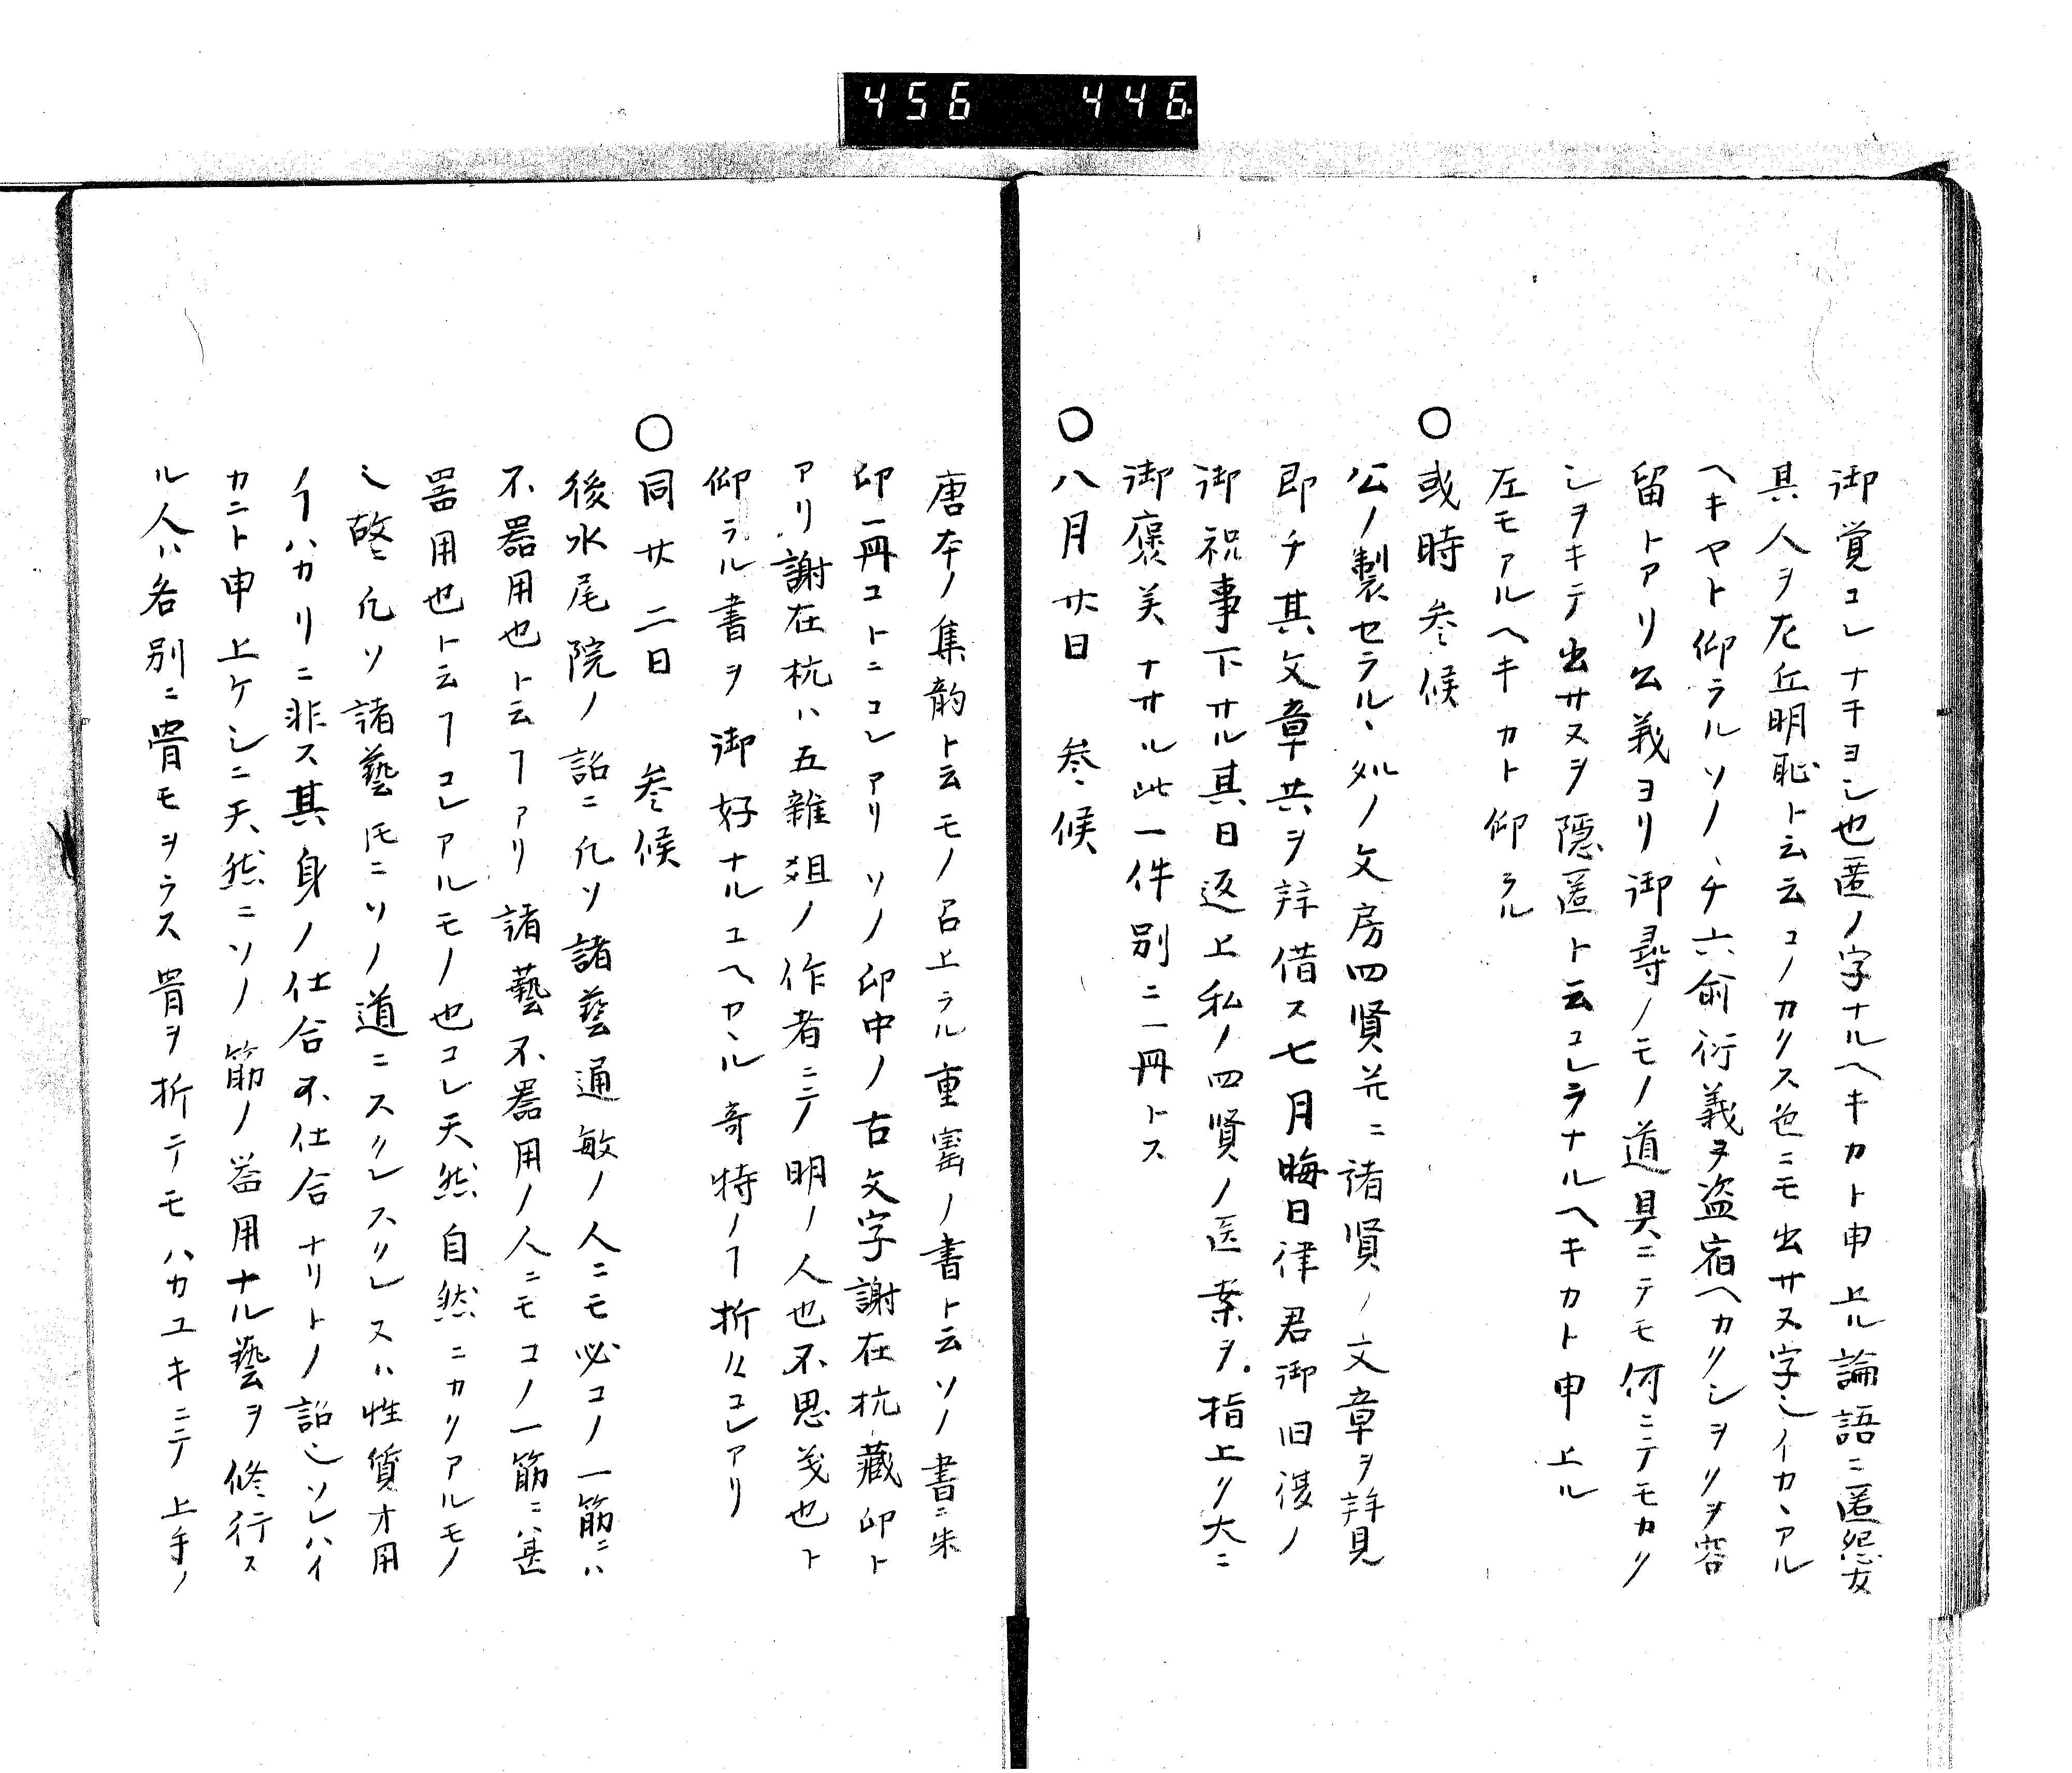 456 446
御覚コレナキヨシ也匿ノ字ナルヘキカト申上ル論語ニ匿怨友
其人ヲ左丘明恥ト云云コノカクス色ニモ出サヌ字シイカヽアル
ヘキヤト仰ラルソノヽチ六俞衍義ヲ盗宿ヘカクシヲリヲ容
留トアリ公義ヨリ御尋ノモノ道具ニテモ何ニテモカク
シヲキテ出サヌヲ隠匿ト云コレラナルヘキカト申上ル
左モアルヘキカト仰ラル
○或時参候
公ノ製セラルヽ処ノ文房四賢并ニ諸賢ノ文章ヲ拝見
即チ其文章共ヲ拝借ス七月晦日律君御旧復ノ
御祝事下サル其日返上私ノ四賢ノ医案ヲ指上ク大ニ
御褒美ナサル此一件別ニ一冊トス
○八月廿日 参候
唐本ノ集韵ト云モノ召上ラル重寯ノ書ト云ソノ書ニ朱
印一冊コトニコレアリソノ印中ノ古文字謝在杭藏印ト
アリ謝在杭ハ五雜爼ノ作者ニテノ明ノ人也不思義也ト
仰ラル書ヲ御好ナルユヘカヽル奇特ノヿ折々コレアリ
○同廿二日 参候
後水尾院ノ詔ニ凡ソ諸藝通敏ノ人ニモ必コノ一筋ニハ
不器用也ト云ヿアリ諸藝不器用ノ人ニモコノ一筋ニ甚
器用也ト云ヿコレアルモノ也コレ天然自然ニカクアルモノ
シ啓凡ソ諸藝𪜈ニソノ道ニスクレスクレスハ性質才用
ノヿハカリニ非ス其身ノ仕合不仕合ナリトノ詔シソレハイ
カニト申上ケシニ天然ニソノ筋ノ器用ナル藝ヲ修行ス
ル人ハ各別ニ骨モヲラス骨ヲ折テモハカユキニテ上手ノ